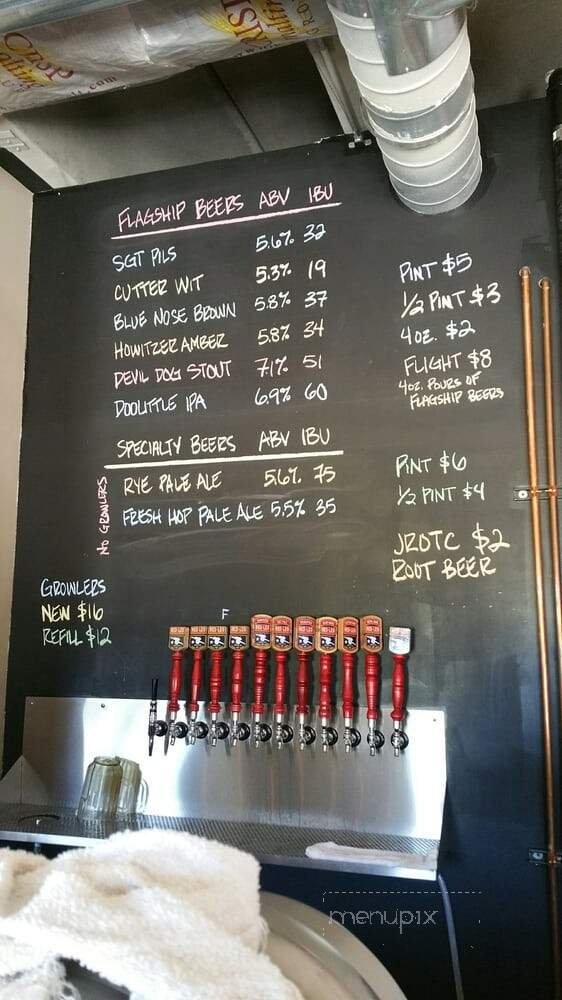 Crisp
Malting
FLAGSHIP BEERS ABV IBU
SGT PILS 5.6% 32
CUTTER WIT 5.3% 19
BLUE NOSE BROWN 5.8% 37
HOWITZER AMBER 5.8% 34
DEVIL DOG STOUT 7.1% 51
DOOLITTLE IPA 6.9% 60
SPECIALTY BEERS ABV IBU
NO GROWLERS
RYE PALE ALE 5.6% 75
FRESH HOP PALE ALE 5.5% 35
PINT $5
1/2 PINT $3
4 OZ. $2
FLIGHT $8
4 OZ. POURS OF
FLAGSHIP BEERS
PINT $6
1/2 PINT $4
JROTC $2
ROOT BEER
GROWLERS
NEW $16
REFILL $12
F
RED LEG
menupix